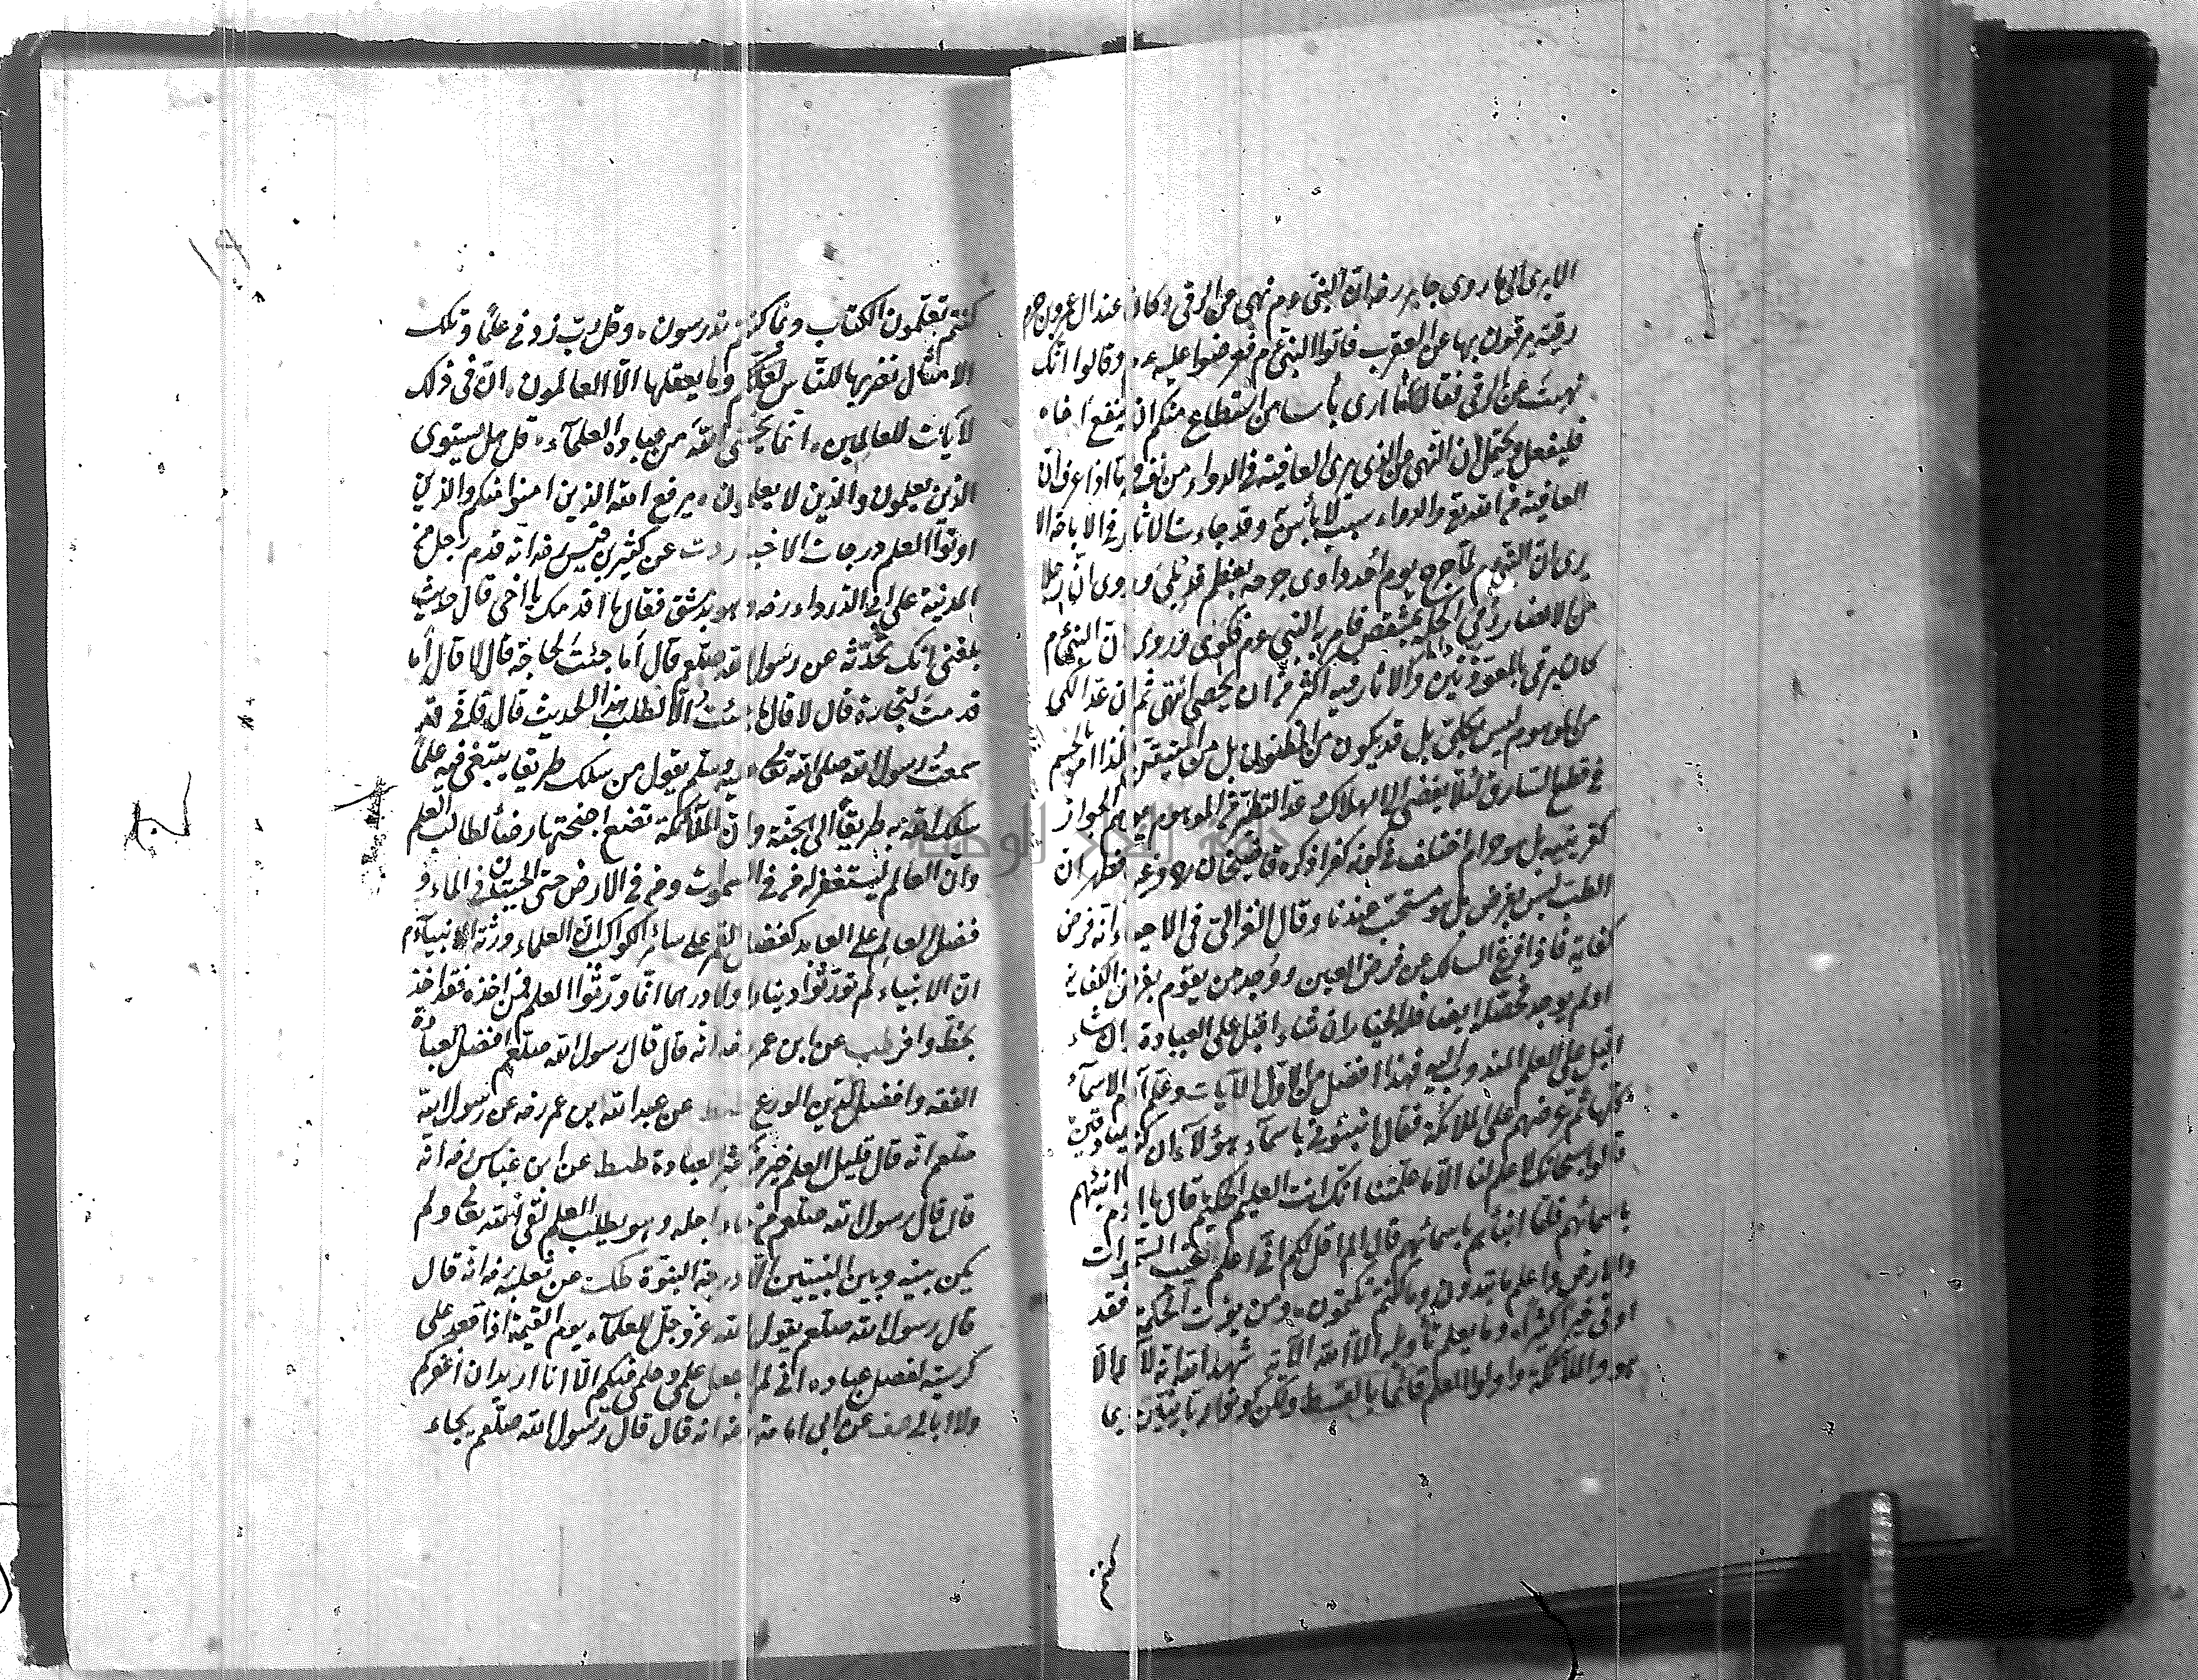 الا يرى الى ما روى جابر رضه ان النبى عم نهى عن الرقى وكان عند ال عمرو بن حزم
رقية يرقون بها عن العقرب فاتوا النبى عم فعرضوا عليه عم وقالوا انك
نهيت عن الرقى فقال ما ارى بأسا من استطاع منكم ان ينفع اخاه
فليفعل ويحتمل ان النهى من الذى يرى العافية فى الدواء من نفسه واما اذا عرف ان
العافية من الله تع والدواء سبب لا بأس به وقد جاءت الاثار فى الاباحة الا
يرى ان النبى عم لما جرح يوم أحد داوى جرحه بعظم قد بلى وروى ان رجلا
من الانصار رمى اكحله بمشقص فامر به النبى عم فكوى وروى ان النبى عم
كان يرقى بالمعوذتين والاثار فيه اكثر من ان يحصى انتهى ثم ان عد الكى
من الموهوم ليس بكلى بل قد يكون من المظنون بل من المتيقن لذا امر بالحسم
فى قطع السارق لئلا يفضى الى الهلاك وعد التطير من الموهوم يوهم الجواز
كقرينيه بل هو حرام اختلف فى كونه كفرا ذكره قاضيخان وغيره فظهر ان
الطب ليس بفرض بل هو مستحب عندنا وقال الغزالى فى الاحياء انه فرض
كفاية فاذا فرغ السالك عن فرض العين ووجد من يقوم بفرض الكفاية
او لم يوجد فحصله ايضا فله الخيار ان شاء اقبل على العبادة وان شاء
اقبل على العلم المندوب اليه فهذا افضل من الاول الآيات وعلم آدم الاسمآء
كلها ثم عرضهم على الملائكة فقال انبئونى باسمآء هؤلآء ان كنتم صادقين
قالوا سبحانك لا علم لنا الا ما علمتنا انك انت العليم الحكيم قال يا ادم انبئهم
باسمائهم فلما انبأهم باسمائهم قال الم اقل لكم انى اعلم غيب السموات
والارض واعلم ما تبدون وما كنتم تكتمون ومن يؤت الحكمة فقد
اوتى خيرا كثيرا وما يعلم تأويله الا الله الآية شهد الله انه لا اله الا
هو والملائكة واولوا العلم قائما بالقسط ولكن كونوا ربانيين بما
كنتم
كنتم تعلمون الكتاب وبما كنتم تدرسون وقل رب زدنى علما وتلك
الامثال نضربها للناس لعلهم وما يعقلها الا العالمون ان فى ذلك
لآيات للعالمين انما يخشى الله من عباده العلمآء قل هل يستوى
الذين يعلمون والذين لا يعلمون يرفع الله الذين امنوا منكم والذين
اوتوا العلم درجات الاخبار دت عن كثير بن قيس رضه انه قدم رجل من
المدينة على ابى الدرداء رضه وهو بدمشق فقال ما اقدمك يا اخى قال حديث
بلغنى انك تحدثه عن رسول الله صلعم قال أما جئت لحاجة قال لا قال أما
قدمت لتجارة قال لا قال ما جئت الا لطلب هذا الحديث قال قال فانى قد
سمعت رسول الله صلى الله تعالى عليه وسلم يقول من سلك طريقا يبتغى فيه علما
سلك الله به طريقا الى الجنة وان الملآئكة تضع اجنحتها رضاء لطالب العلم
وان العالم ليستغفر له من فى السموات ومن فى الارض حتى الحيتان فى الماء و
فضل العالم على العابد كفضل القمر على سائر الكواكب ان العلماء ورثة الانبيآء عم
ان الانبياء لم يورثوا دينارا ولا درهما انما ورثوا العلم فمن اخذه فقد اخذ
بحظ وافر طب عن ابن عمر رضه انه قال قال رسول الله صلعم افضل العبادة
الفقه وافضل الدين الورع طط عن عبد الله ابن عمر رضه عن رسول الله
صلعم انه قال قليل العلم خير من كثير العبادة طط عن ابن عباس رضه انه
قال قال رسول الله صلعم من جاء اجله وهو يطلب العلم لقى الله تعالى ولم
يكن بينه وبين النبيين الا درجة النبوة طك عن ثعلبة رضه انه قال
قال رسول الله صلعم يقول الله عز وجل للعلمآء يوم القيمة اذا قعد على
كرسيه لفصل عباده انى لم اجعل علمى وحلمى فيكم الا انا اريد ان اغفر لكم
ولا ابالى صف عن ابى امامة رضه انه قال قال رسول الله صلعم يجاء